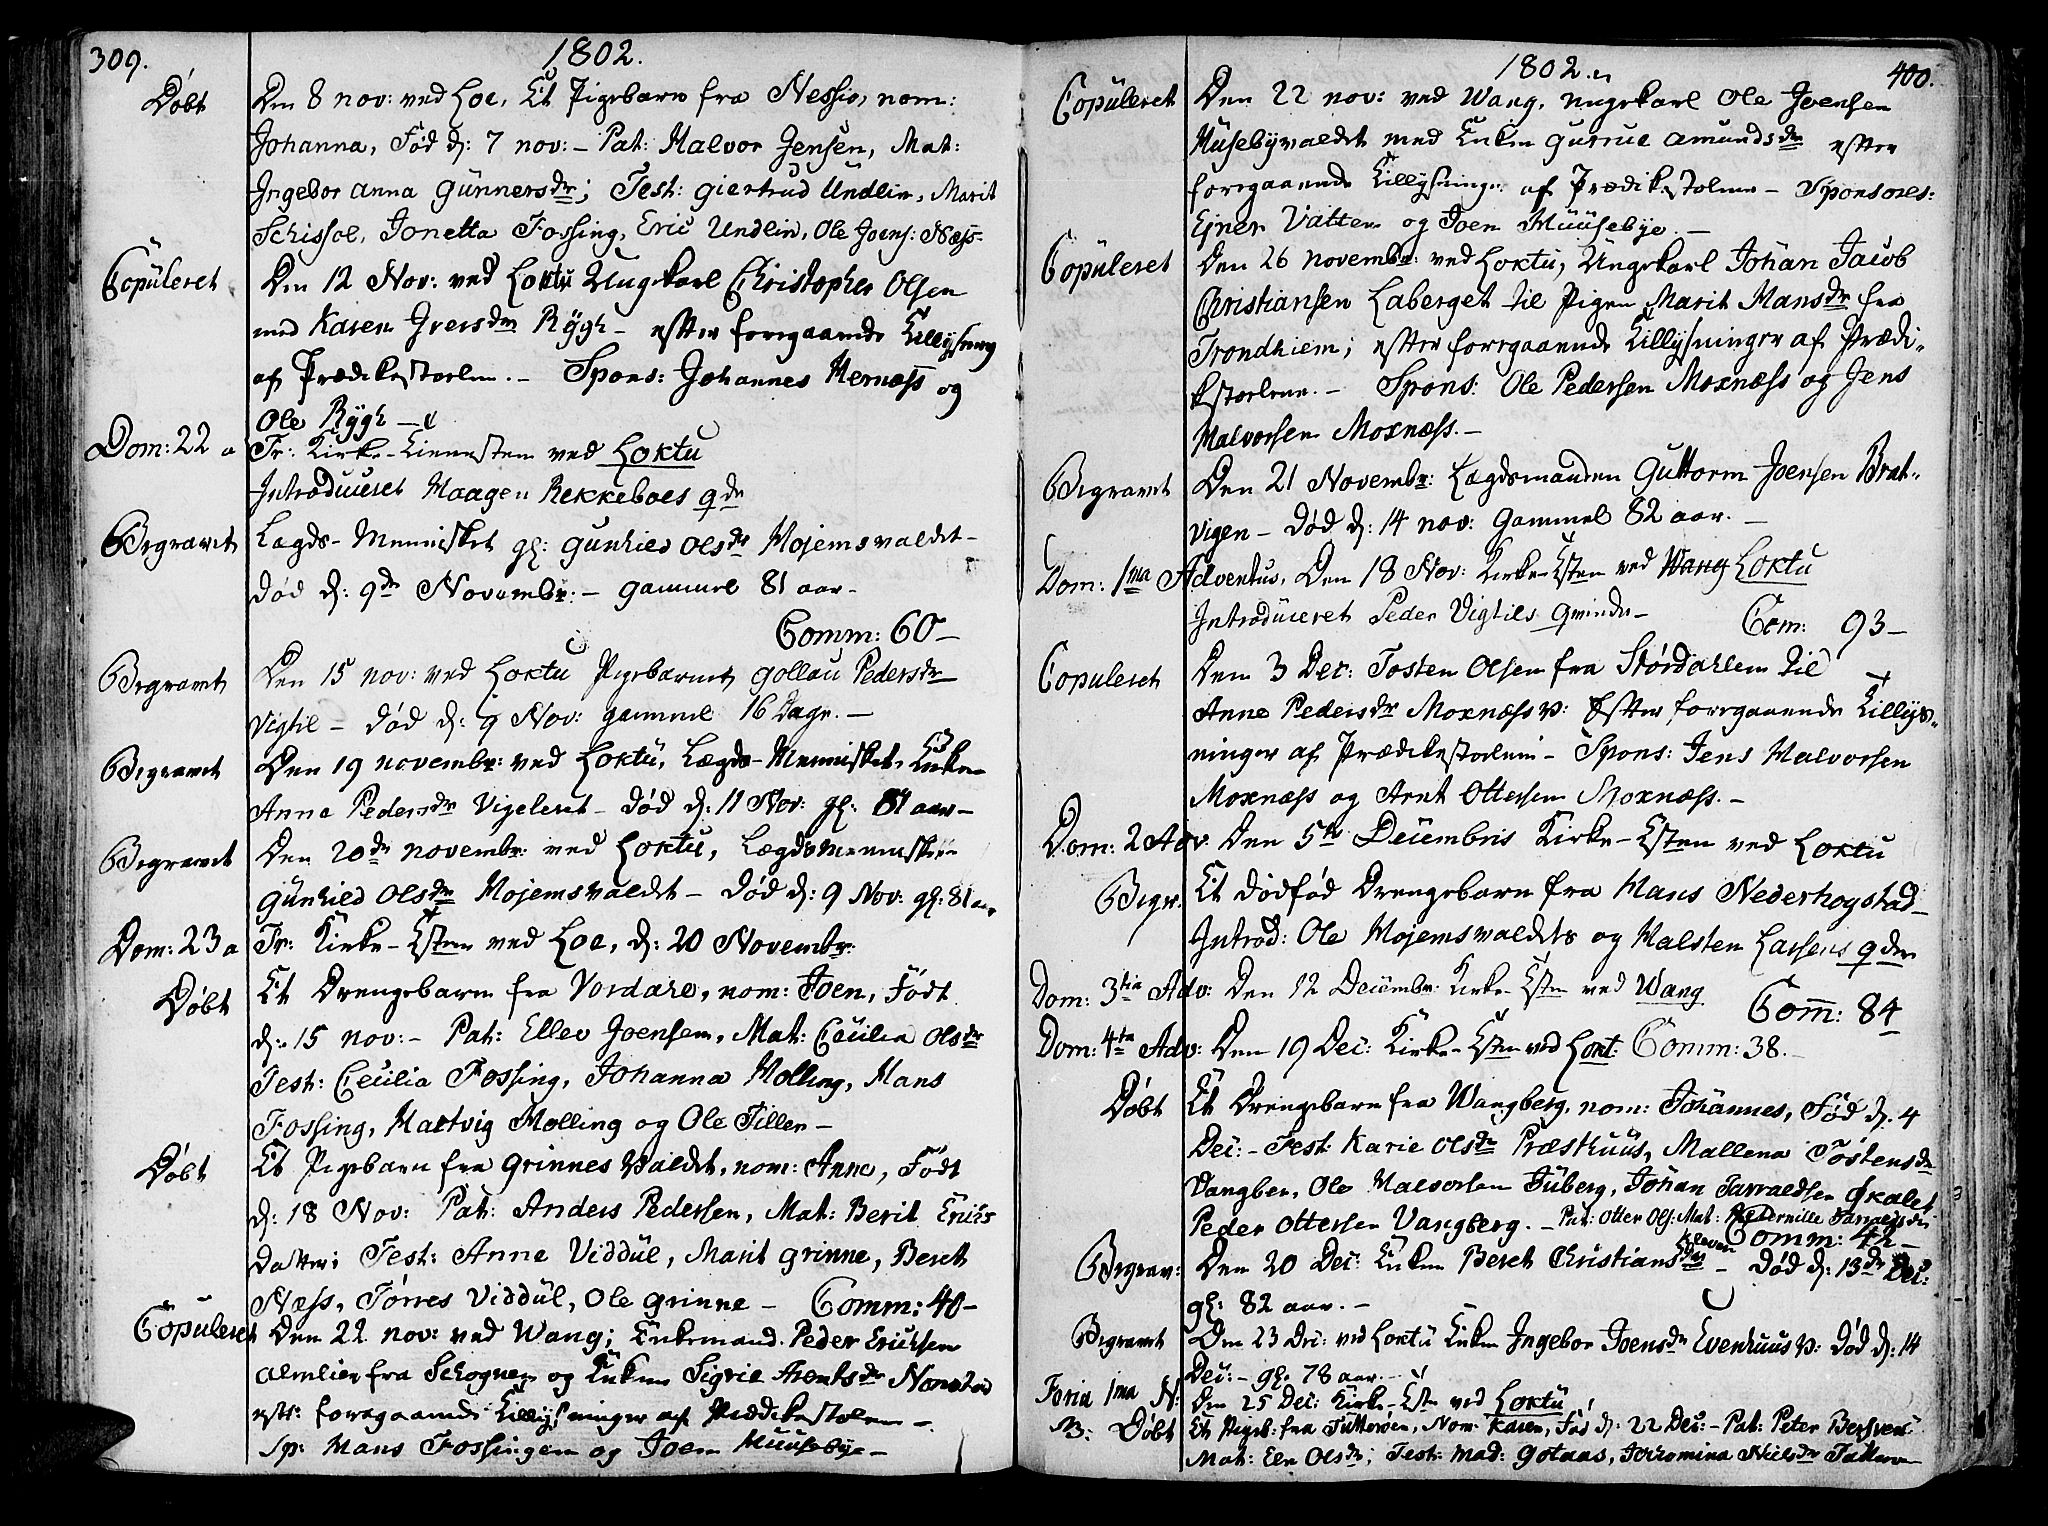 309.
1802.
Døbt
Den 8 nov: ved Loe, Et Pigebarn fra Nessio, nom:
Johanna, Fød d: 7 nov: - Pat: Halvor Jensen, Mat:
Ingebor Anna Gunnersdr; Test: Giertrud Undlin, Marit
Schissol, Jonetta Fossing, Eric Undlin, Ole Joens: Næss-
Copuleret
Den 12 Nov: ved Loktu Ungekarl Christopher Olsen
med Karen Iversdr Rygh - efter foregaaende Tillysning
af Prædikestoelen. - Spons: Johannes Hernæss og
Ole Rygh -
Dom: 22 a Tr: Kirke-Tienesten ved Loktu
Introduceret Haagen Rekkeboes qdr
Begravet
Lægds-Mennisket gl: Gunhied Olsdr Hojemsvaldet -
død d: 9de Novembr: - gammel 81 aar -
Comm: 60 -
Begravet
Den 15 nov: ved Loktu Pigebarnet Gollau Pedersdr
Vigtil - død d: 9 Nov: gammel 16 Dage. -
Begravet
Den 19 novembr: ved Loktu, Lægds-Mennisket, Enken
Anne Pedersdr Vigeleret - død d: 11 Nov: gl: 81 aar -
Begravet
Den 20de novembr: ved Loktu, Lægdsmennisket
Gunhied Olsdr Hojemsvaldet - død d: 9 Nov: gl: 81 aar
Dom: 23 a Tr: Kirke-Tsten ved Loe, d: 20 Novembr:
Døbt
Et Drengebarn fra Vordare, nom: Joen, Født
d: 15 nov: - Pat: Ellev Joensen, Mat: Cecilia Olsdr
Test: Cecilia Fossing, Johanna Molling, Hans
Fossing, Hartvig Molling og Ole Tiller -
Døbt
Et Pigebarn fra Grinnes Valdet, nom: Anne, Født
d: 18 Nov: Pat: Anders Pedersen, Mat: Berit Erichs
Datter; Test: Anne Viddul, Marit Grinne, Beret
Næss, Torres Viddul, Ole Grinne - Comm: 40 -
Copuleret
Den 22 nov: ved Wang; Enkemand Peder Erichsen
Almlien fra Schognen og Enken Sigrie Arentsdr Nonstad
eft: foregaaende Tillysninger af Prædikestolen -
Sp: Hans Fossingen og Joen Huusebye -
1802.
400.
Copuleret
Den 22 nov: ved Wang, Ungekarl Ole Joensen
Husebyvaldet med Enken Gurrue Amundsdr efter
foregaaende Tillysninger af Prædikestolene - Sponsores:
Ejner Vatten og Joen Huusebye. -
Copuleret
Den 26 novembr: ved Loktu, Ungekarl Johan Jacob
Christiansen Laberget til Pigen Marit Hansdr fra
Trondhiem; efter foregaaende Tillysninger af Prædi-
kestoelene. - Spons: Ole Pedersen Moxnæss og Jens
Halvorsen Moxnæss. -
Begravet
Den 21 Novembr: Lægdsmanden Guttorm Joensen Brat-
vigen - død d: 14 nov: Gammel 82 aar. -
Dom: 1ma Adventus, Den 18 Nov: Kirke-Tsten ved Wang Loktu
Introduceret Peder Vigtils Qvinde - Com: 93 -
Copuleret
Den 3 Dec: Tosten Olsen fra Størdahlen til
Anne Pedersdr Moxnæss V: Efter foregaaende Tillys-
ninger af Prædikestoelen - Spons: Jens Halvorsen
Moxnæss og Arnt Ottersen Moxnæss. -
Dom: 2 Adv Den 5te Decembris Kirke-Tsten ved Loktu
Begr. Et dødfød Drengebarn fra Hans Nederhogstad -
Introd: Ole Hojemsvaldets og Halsten Larsens qdr
Dom: 3tia Adv: Den 12 Decembr: Kirke-Tsten ved Wang
Com: 84
Dom: 4ta Adv: Den 19 Dec: Kirke-Tsten ved Lokt: Comm: 38. -
Døbt
Et Drengebarn fra Wangberg, nom: Johannes, Fød d: 4
Dec: - Test: Karie Olsdr Præsthuus, Mallena Tostensdr
Vangber, Ole Halvorsen Tuberg, Johan Tarraldsen Skalet
Peder Ottersen Vangberg. - Pat: Otter Ols: Mat: Pedernille Tarraldsdr
Comm: 42 -
Begrav:
Den 20 Dec: Enken Beret Christiansdr Kleven - død d: 13de Dec:
gl: 82 aar. -
Begravet
Den 23 Dec: ved Loktu Enken Ingebor Joensdr Evenhuus V: død d: 14
Dec: - gl: 78 aar. -
Feria 1ma N: Den 25 Dec: Kirke-Tste ved Loktu
Døbt Et Pigeb: fra Tutteroen, Nom: Karen, Fød d: 22 Dec: - Pat: Peter Bersven:
Mat: Elen Olsdr; Test: Mad: Gotaas, Jerromina Nielsdr Tutteroe